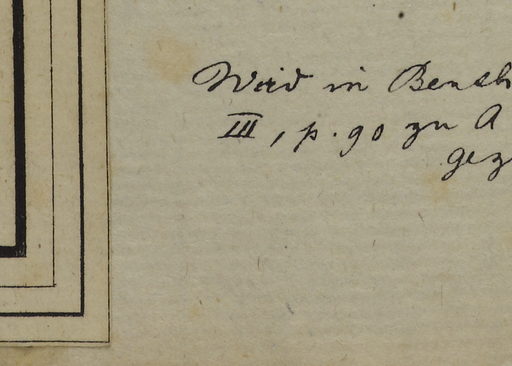 Wird in Bensh
III, p. 90 zu A
gez